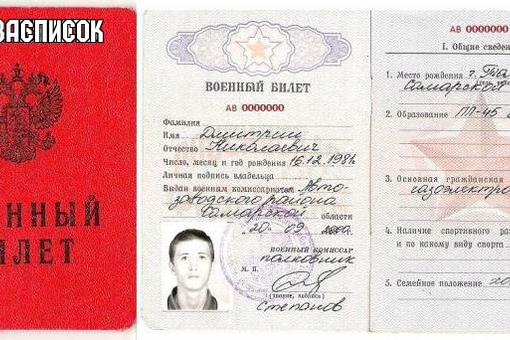 ЗАСПИСОК
ЕННЫЙ
ИЛЕТ
ВОЕННЫЙ БИЛЕТ
АВ 0000000
Фамилия
Имя Дмитрий
Отчество Николаевич
Число, месяц и год рождения 16.12.198
Личная подпись владельца
Выдан военным комиссариатом Авто-
заводского района
Самарской области
20 09
ВОЕННЫЙ КОМИССАР
полковник
М. П.
(звание, подпись)
Степанов
АВ 0000000
I. Общие сведе
1. Место рождения г.
Самарской
2. Образование ПЛ-45
3. Основная гражданская
газоэлектро
4. Наличие спортивного раз
и по какому виду спорта
5. Семейное положение хо